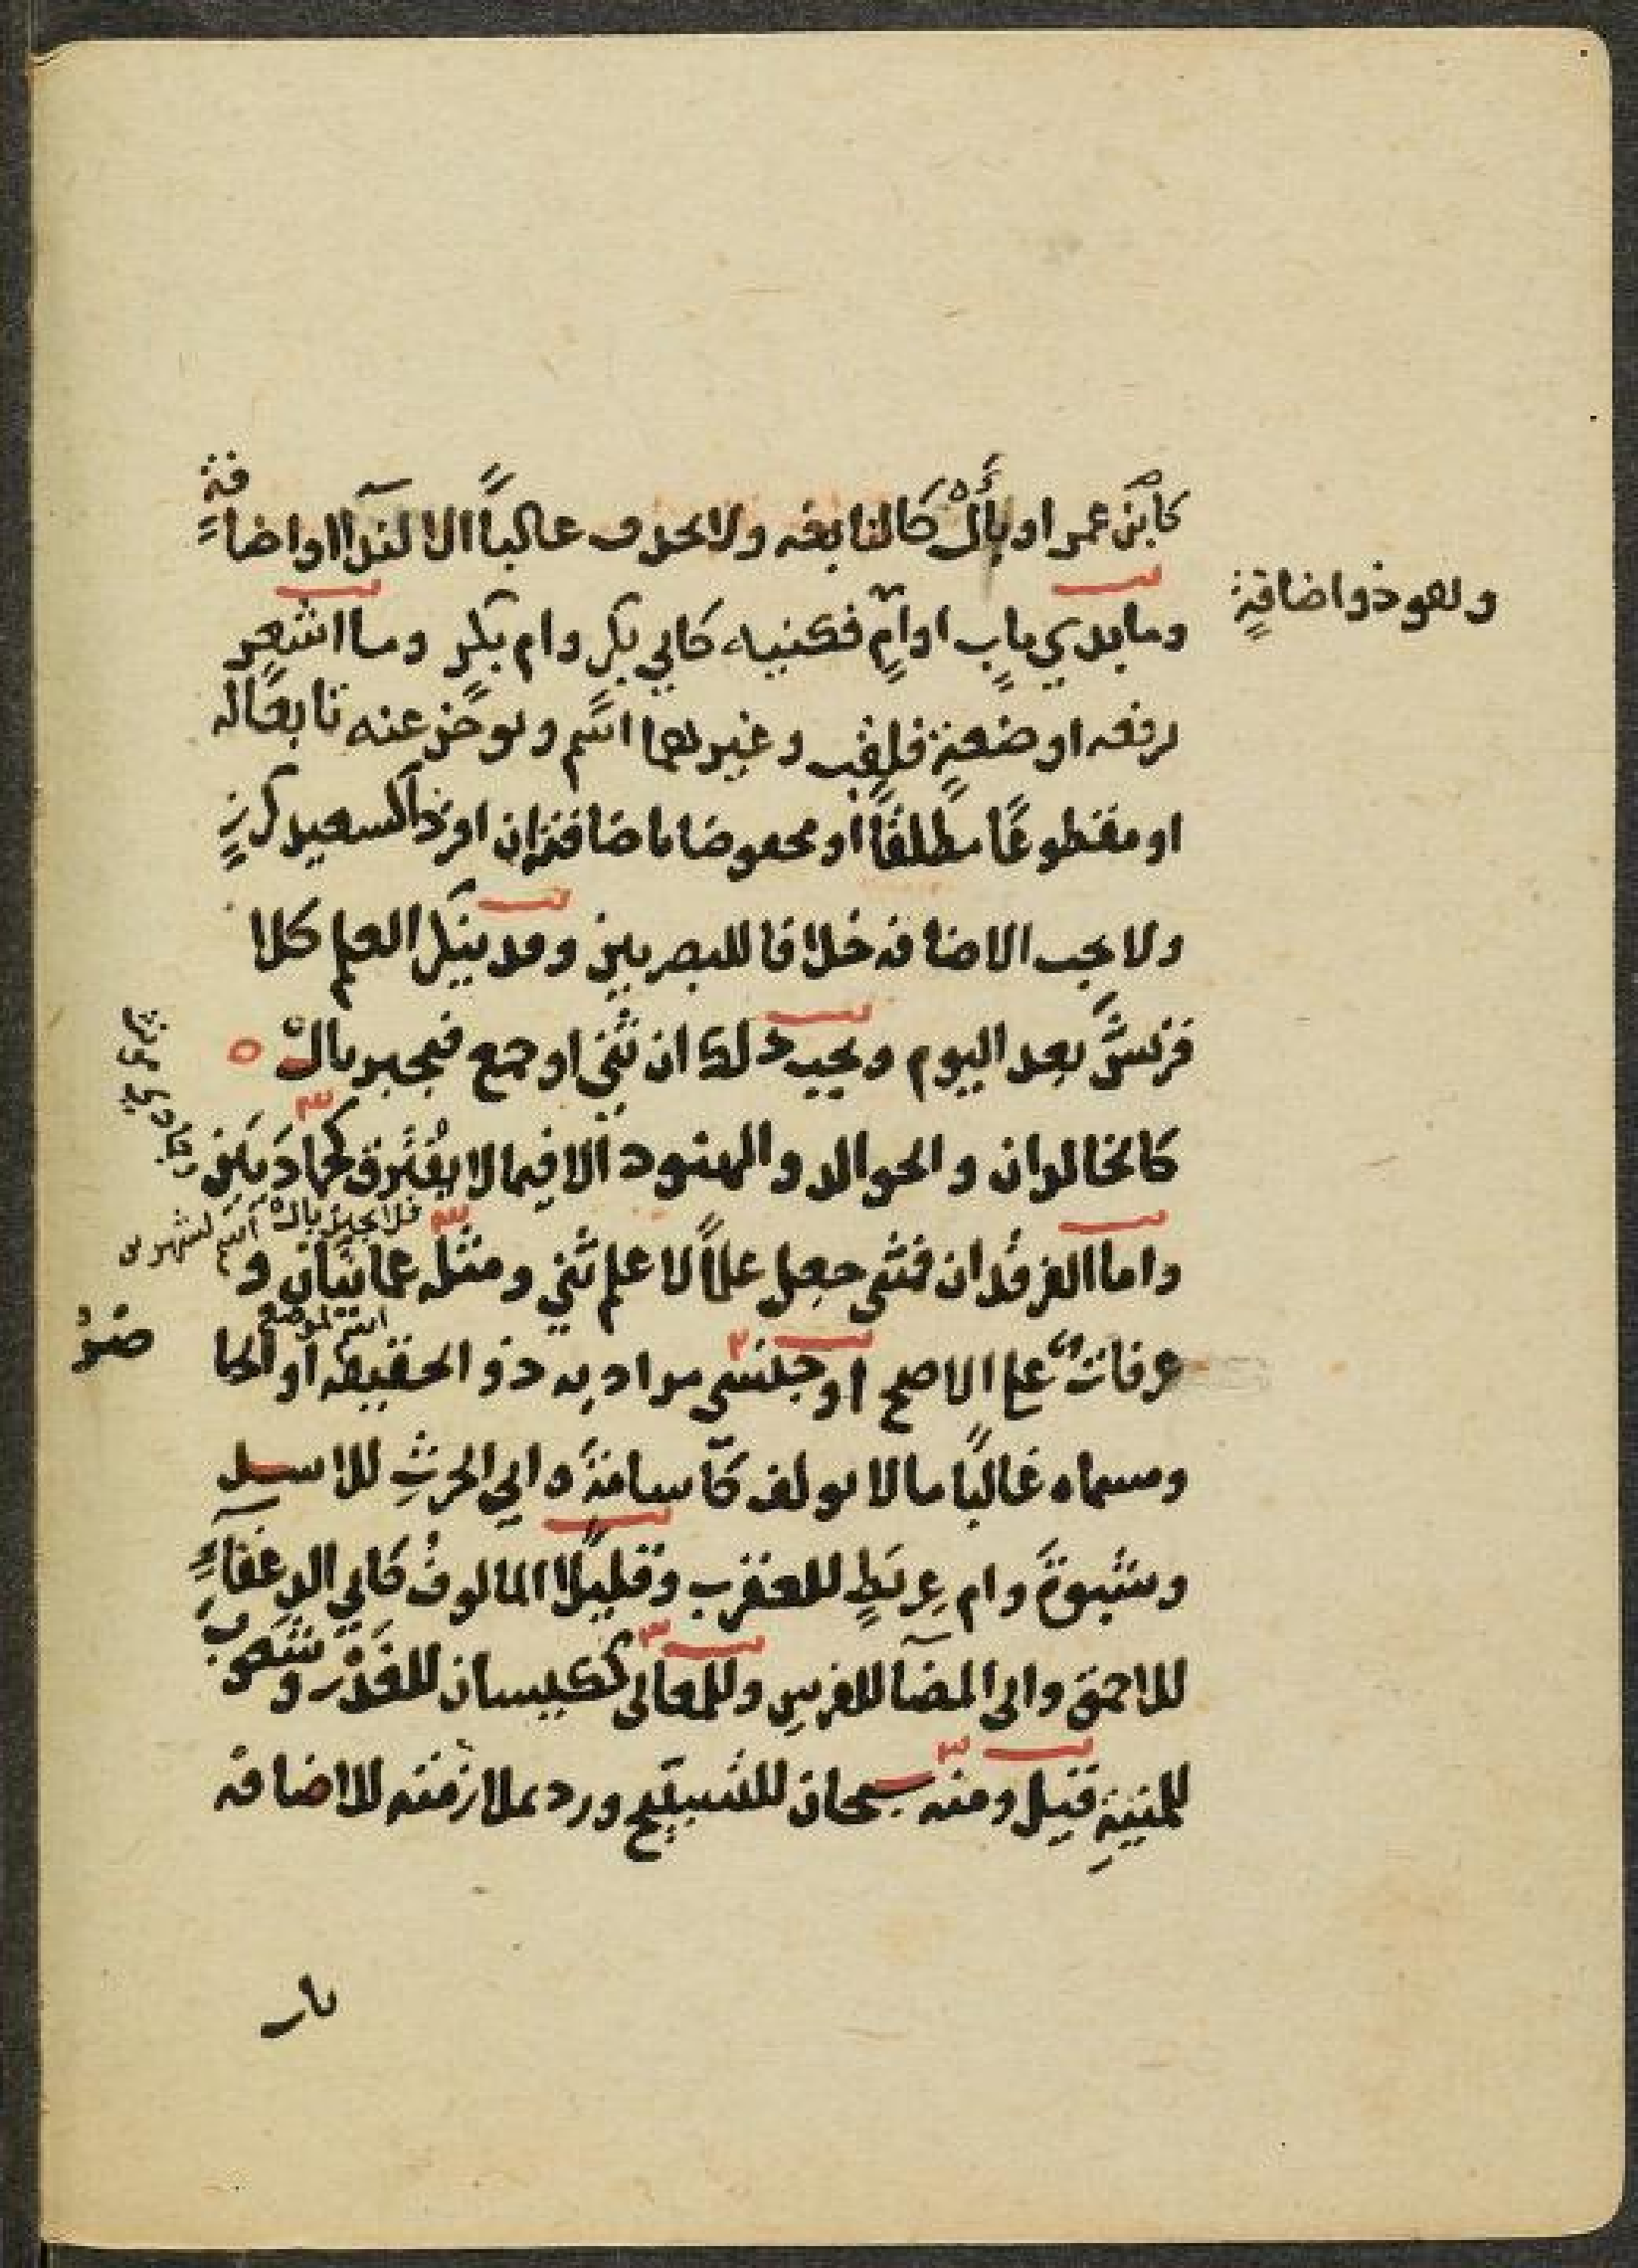 كابن عمر او بأل كالنابغه ولا تحذف غالباً الا لندا او اضافةٍ
وهو ذو اضافةٍ
وما بدي بابٍ او امٍ فكنيه كابي بكر وام بكر وما اشعر
برفعه او ضعةٍ فلقب وغيرهما اسم ويوخر عنه تابعًا له
او مقطوعًا مطلقًا او مخفوضا باضافة ان افردا كسعيد كرزٍ
ولا يجب الاضافه خلافا للبصريين وقد ينكر العلم كلا
قريشَ بعد اليوم ويجب ذلك ان ثني او جمع فيجبر بالْ
كالخالدان والخوالد والهنود الا فيما لا يفترق كجمادَيَين
فلا يجبر بالْ اسم لشهرين
واما الفرقدان فمثنى جعل علماً لا علم ثني ومثله عمايتان و
اسم لموضع
عرفات على الاصح او جنسي مراد به ذو الحقيقه او الحا
ضرُ
ومسماه غالبًا ما لا يولف كاسامةَ وابي الحرثِ للاسد
وشبوةَ وام عِريَطٍ للعقرب وقليلاً المالوفُ كابي الدغفاءِ
للاحمق وابي المضا للفرس وللمعاني ككيسان للغَدْر وشعوبَ
للمنيةِ قيل ومنه سبحان للتسبيح ورد بملازمته للاضافه
بار